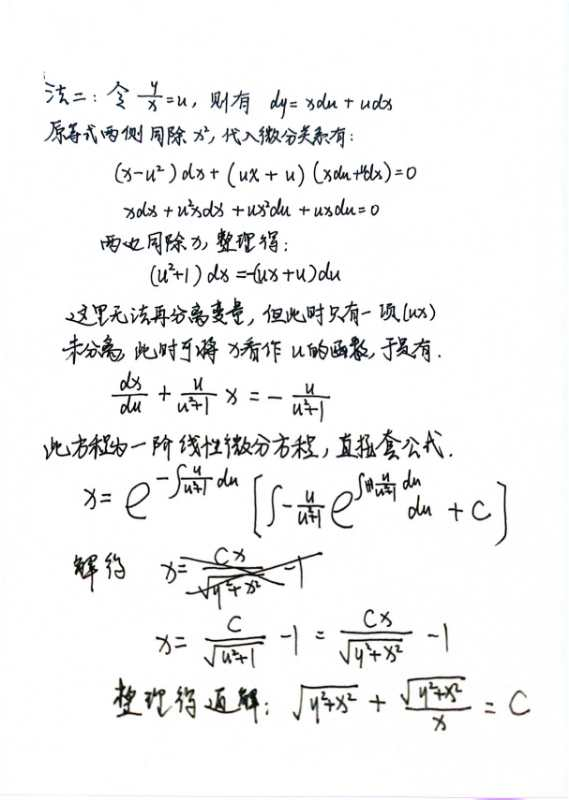 法二：令 y/x = u，则有 dy = xdu + udx
原等式两侧同除 x²，代入微分关系有：
(x-u²)dx + (ux+u)(xdu+udx)=0
xdx + u²xdx + ux²du + uxdu = 0
两边同除 x，整理得：
(u²+1)dx = -(ux+u)du
这里无法再分离变量，但此时只有一项(ux)
未分离，此时可将 x 看作 u 的函数，于是有.
dx/du + u/(u²+1) x = - u/(u²+1)
此方程为一阶线性微分方程，直接套公式.
x = e^(-∫ u/(u²+1) du) [∫ - u/(u²+1) e^(∫ u/(u²+1) du) du + C]
解得 x = Cx/√(y²+x²) - 1
x = C/√(u²+1) - 1 = Cx/√(y²+x²) - 1
整理得通解：√(y²+x²) + √(y²+x²)/x = C